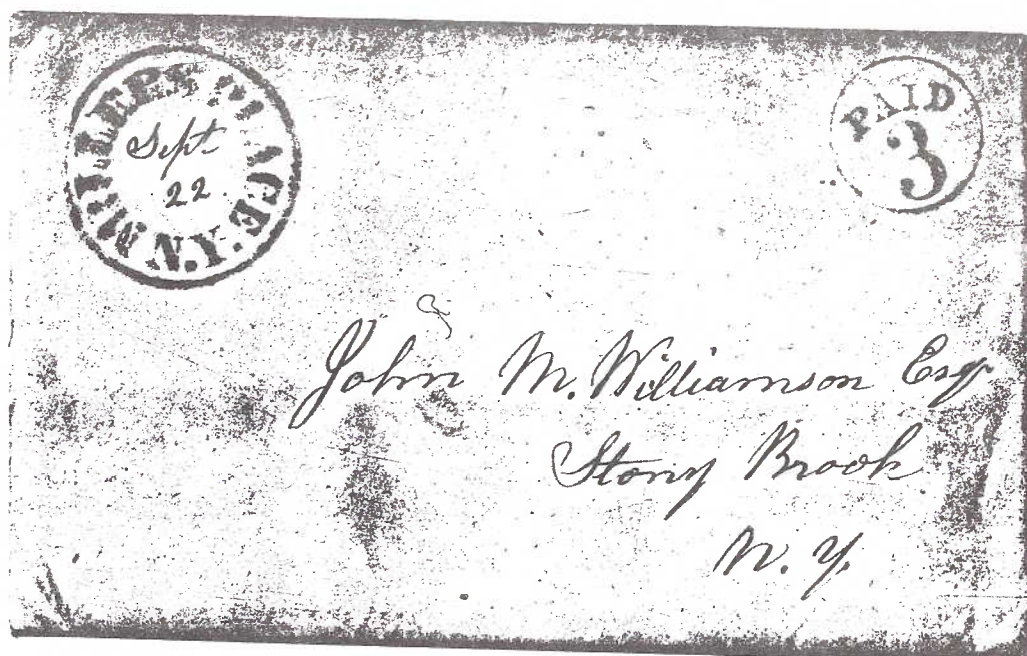 MILLERS PLACE. N.Y.
Sept
22
PAID
3
John M. Williamson Esq
Stony Brook
N. Y.